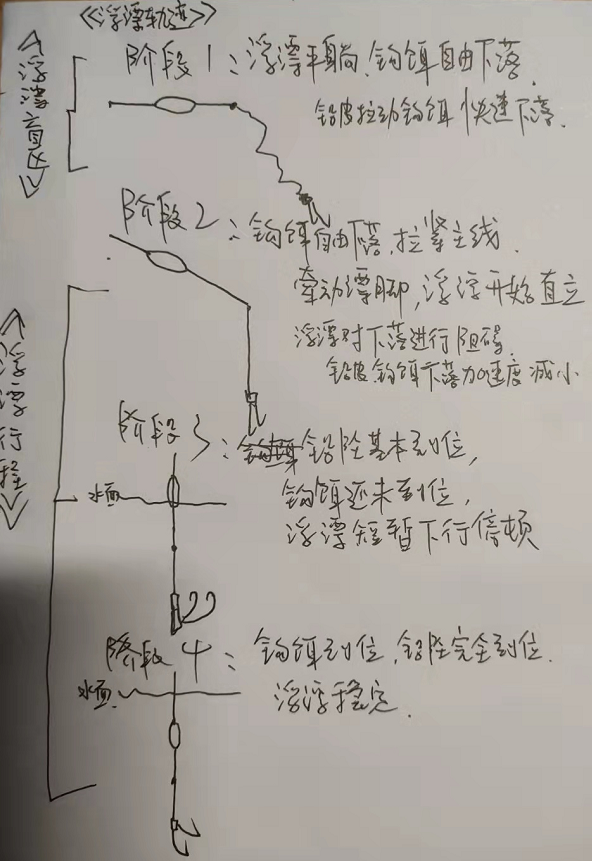 《浮漂轨迹》
阶段1：浮漂平躺，钩饵自由下落，
铅皮拉动钩饵快速下落.
《浮漂直立》
阶段2：钩饵自由下落，拉紧主线.
牵动漂脚，浮漂开始直立
浮漂对下落进行阻碍.
铅皮钩饵下落加速度减小
《浮漂行程》
阶段3：铅坠基本到位，
水面
钩饵还未到位，
浮漂短暂下行停顿
阶段4：钩饵到位，铅坠完全到位.
水面
浮漂稳定.